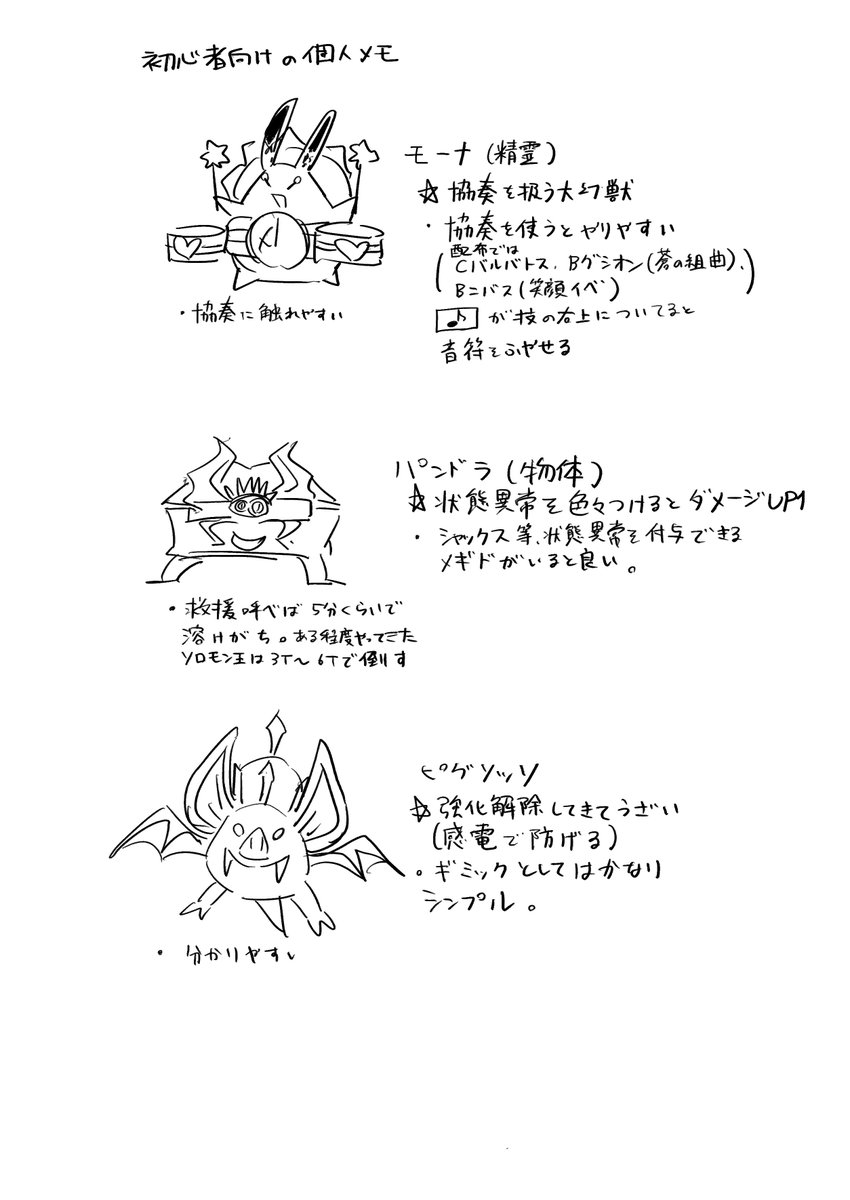 初心者向けの個人メモ
モーナ(精霊)
☆協奏を扱う大幻獣
・協奏を使うとやりやすい
(配布では
Cバルバトス、Bグシオン(蒼の組曲)、
Bニバス(笑顔イベ))
♪が技の右上についてると
音符をふやせる
・協奏に触れやすい
パンドラ(物体)
☆状態異常を色々つけるとダメージUP↑
・シャックス等、状態異常を付与できる
メギドがいると良い。
・救援呼べば5分くらいで
溶けがち。ある程度やってきた
ソロモン王は3T〜6Tで倒す
ピグソッソ
☆強化解除してきてうざい
(感電で防げる)
。ギミックとしてはかなり
シンプル。
・分かりやすい